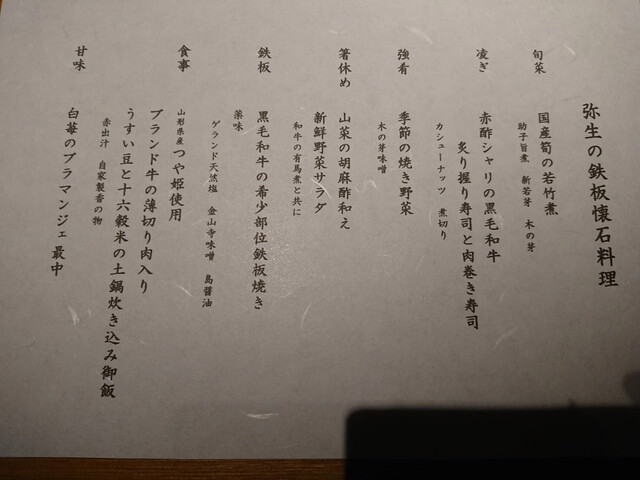 弥生の鉄板懐石料理
旬菜
国産筍の若竹煮
助子旨煮 新若芽 木の芽
凌ぎ
赤酢シャリの黒毛和牛
炙り握り寿司と肉巻き寿司
カシューナッツ 煮切り
強肴
季節の焼き野菜
木の芽味噌
箸休め
山菜の胡麻酢和え
新鮮野菜サラダ
和牛の有馬煮と共に
鉄板
黒毛和牛の希少部位鉄板焼き
薬味
ゲランド天然塩 金山寺味噌 島醤油
食事
山形県産つや姫使用
ブランド牛の薄切り肉入り
うすい豆と十六穀米の土鍋炊き込み御飯
赤出汁 自家製香の物
甘味
白苺のブラマンジェ最中